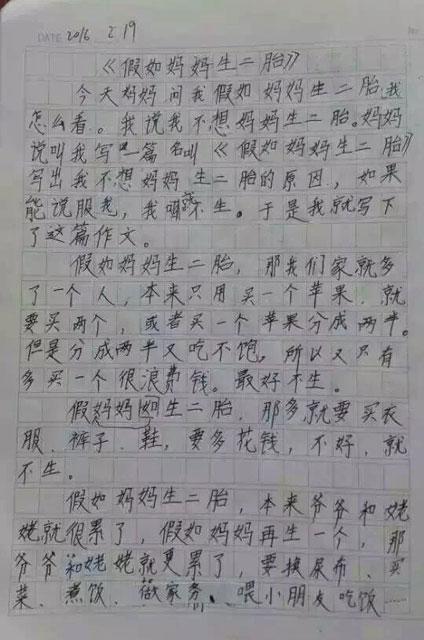 DATE 2016 2 19
《假如妈妈生二胎》
今天妈妈问我假如妈妈生二胎,我
怎么看。我说我不想妈妈生二胎。妈妈
说叫我写一篇名叫《假如妈妈生二胎》
写出我不想妈妈生二胎的原因,如果
能说服她,我妈就不生。于是我就写下
了这篇作文。
假如妈妈生二胎,那我们家就多
了一个人,本来只用买一个苹果,就
要买两个,或者买一个苹果分成两半。
但是分成两半又吃不饱,所以又只有
多买一个很浪费钱。最好不生。
假妈妈如生二胎,那多就要买衣
服、裤子、鞋,要多花钱,不好,就
不生。
假如妈妈生二胎,本来爷爷和姥
姥就很累了,假如妈妈再生一个,那
爷爷和姥姥就更累了,要换尿布、买
菜、煮饭、做家务、喂小朋友吃饭……